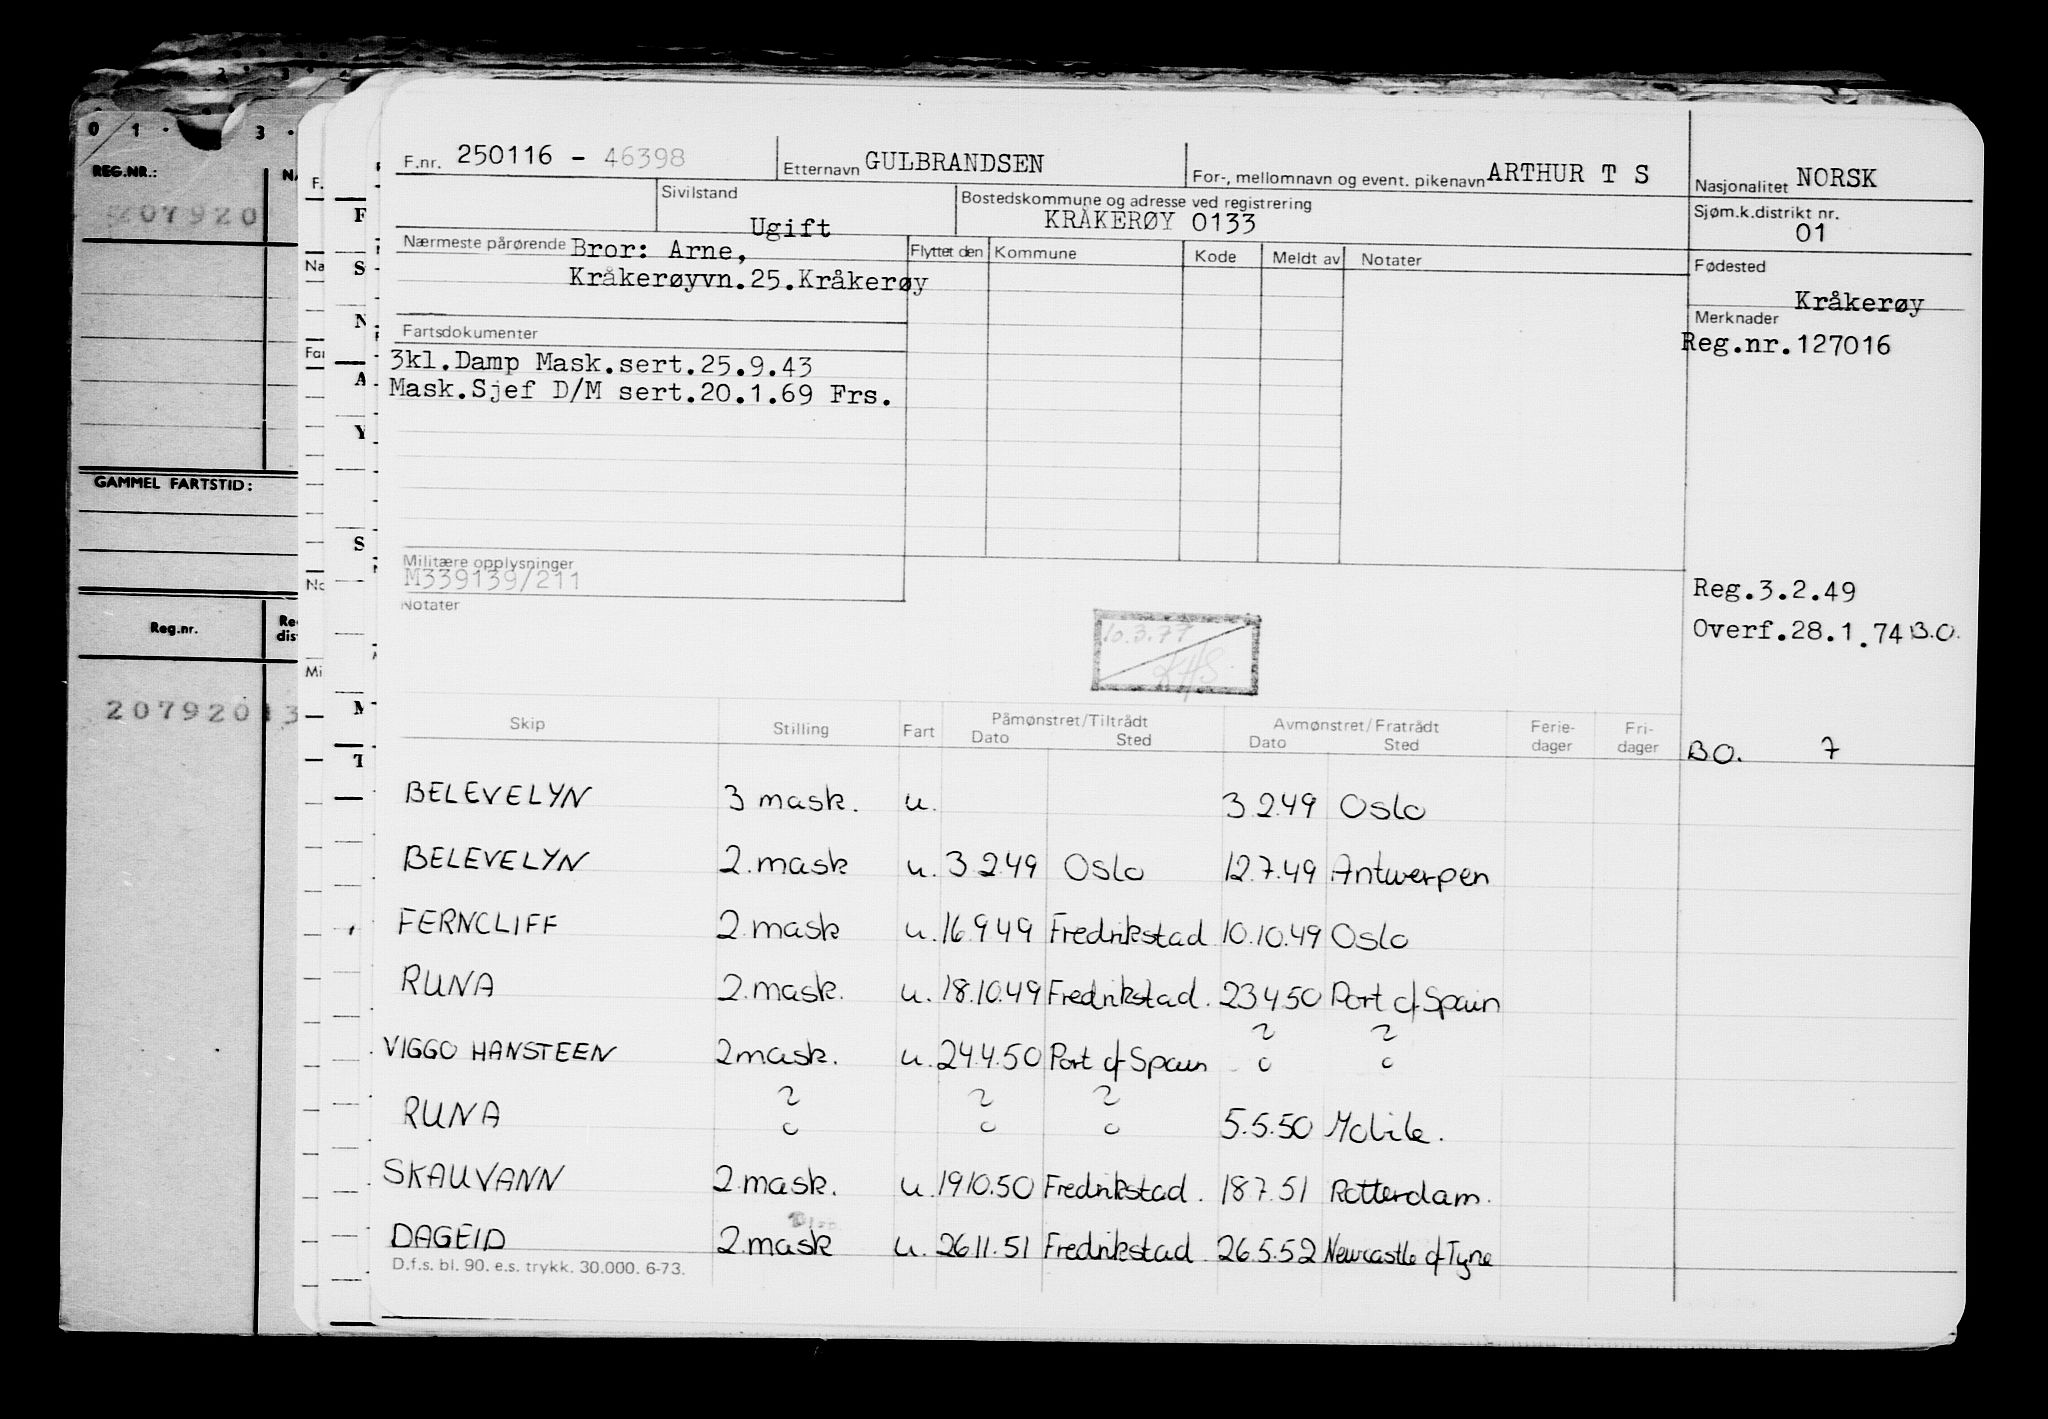 F.nr. 250116 - 46398 Etternavn GULBRANDSEN For-, mellomnavn og event. pikenavn ARTHUR T S Nasjonalitet NORSK
Sivilstand Ugift Bostedskommune og adresse ved registrering KRÅKERØY 0133 Sjøm.k.distrikt nr. 01
Nærmeste pårørende Bror: Arne,
Kråkerøyvn.25.Kråkerøy
Flyttet den Kommune Kode Meldt av Notater
Fødested Kråkerøy
Merknader
Reg.nr.127016
Fartsdokumenter
3kl.Damp Mask.sert.25.9.43
Mask.Sjef D/M sert.20.1.69 Frs.
Militære opplysninger
M339139/211
Notater
10.3.77
Reg.3.2.49
Overf.28.1.74 B.O.
BO. 7
Skip Stilling Fart Påmønstret/Tiltrådt Dato Sted Avmønstret/Fratrådt Dato Sted Ferie-dager Fri-dager
BELEVELYN 3 mask. u. 3.2.49 Oslo
BELEVELYN 2.mask u. 3.2.49 Oslo 12.7.49 Antwerpen
FERNCLIFF 2.mask u. 16.9.49 Fredrikstad 10.10.49 Oslo
RUNA 2.mask. u. 18.10.49 Fredrikstad. 23.4.50 Port of Spain
VIGGO HANSTEEN 2mask. u. 24.4.50 Port of Spain ? ?
RUNA ? ? ? 5.5.50 Mobile.
SKAUVANN 2.mask. u. 19.10.50 Fredrikstad. 18.7.51 Rotterdam.
DAGEID 2.mask u. 26.11.51 Fredrikstad 26.5.52 Newcastle of Tyne
D.f.s. bl. 90. e.s. trykk. 30.000. 6-73.
0 1 3
REG.NR.:
207920
GAMMEL FARTSTID:
Reg.nr.
207920 13